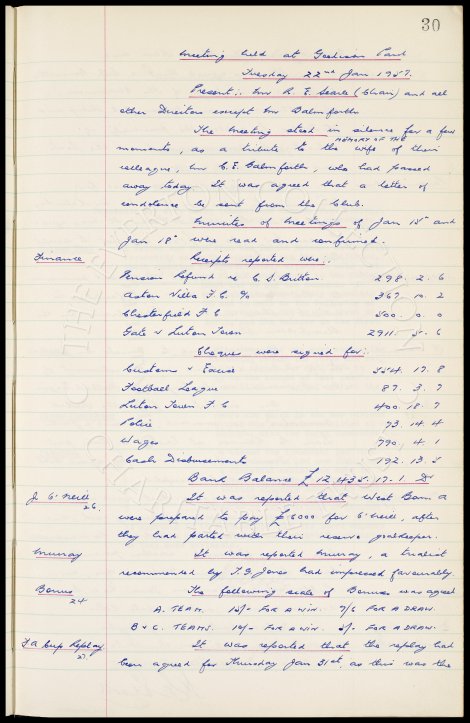 30
Meeting held at Goodison Park
Tuesday 22nd Jan 1957.
Present:. Mr R. E. Searle (Chair) and all
other Directors except Mr Balmforth
The Meeting stood in silence for a few
MEMORY OF THE
moments, as a tribute to the wife of their
colleague, Mr C. E. Balmforth, who had passed
away today. It was agreed that a letter of
condolence be sent from the Club.
Minutes of Meetings of Jan 15th and
Jan 18th were read and confirmed.
Finance Receipts reported were:.
Pension Refund re C. S. Britton 298. 2. 6
Aston Villa F.C. % 367. 10. 2
Chesterfield F C 500. 0. 0
Gate v Luton Town 2911. 5. 6
Cheques were signed for:.
Customs & Excise 554. 17. 8
Football League 87. 3. 7
Luton Town F C 400. 18. 7
Police 73. 14. 4
Wages 790. 4. 1
Cash Disbursements 192. 13. 5
Bank Balance £12,435. 17. 1 D
J. O'Neill It was reported that West Brom A
26.
were prepared to pay £6000 for O'Neill, after
they had parted with their reserve goalkeeper.
Murray It was reported Murray, a trialist
recommended by T. G Jones had impressed favourably.
Bonus The following scale of Bonuses was agreed
24
A. TEAM. 15/- FOR A WIN. 7/6 FOR A DRAW.
B & C. TEAMS. 10/- FOR A WIN. 5/- FOR A DRAW.
F a Cup Replay It was reported that the replay had
27.
been agreed for Thursday Jan 31st, as this was the